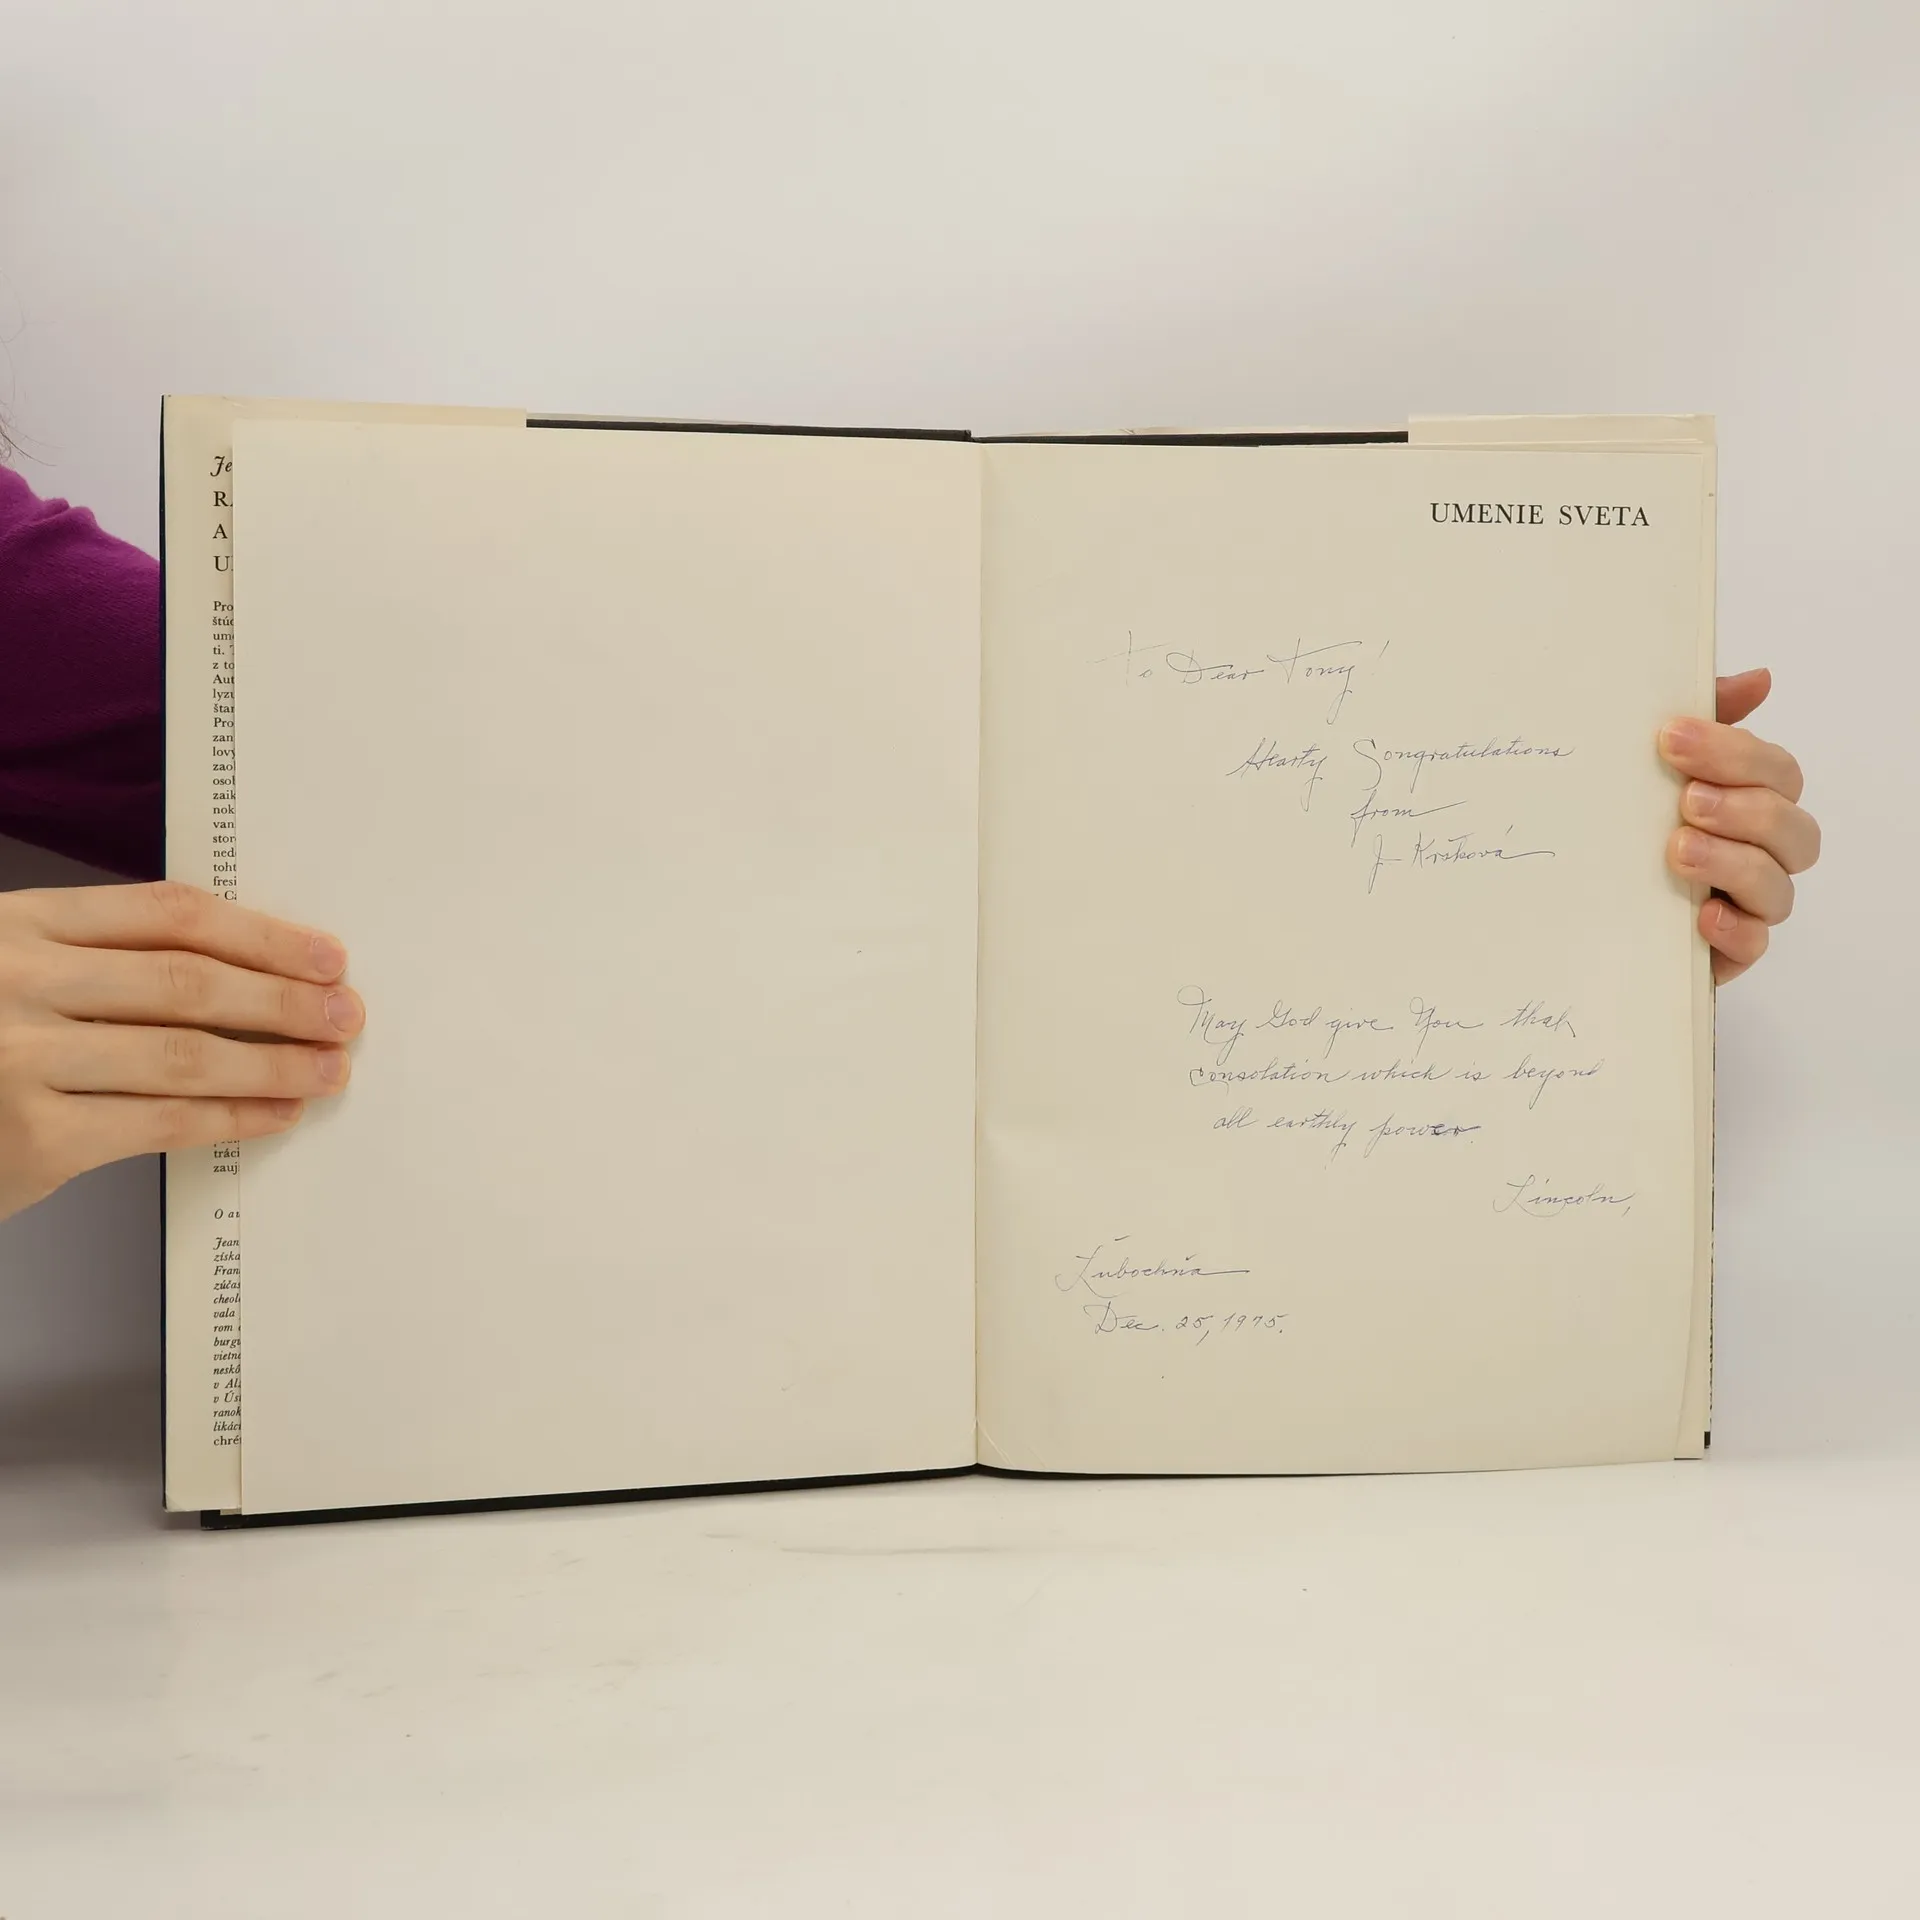 Je
R
A
U
Pro
štúd
ume
ti.
z to
Aut
lyzu
štan
Pro
zan
lovy
zaol
osol
zaik
nok
van
stor
ned
toht
fresi
Ca
tráci
zauj
O au
Jean
získa
Fran
zúčas
cheol
vala
rom
burgu
vietna
neskô
v Al
v Úst
ranok
likáci
chré
UMENIE SVETA
To Dear Tony!
Hearty Congratulations
from
J. Kršková
May God give You that
consolation which is beyond
all earthly power.
Lincoln,
Ľubochňa
Dec. 25, 1975.